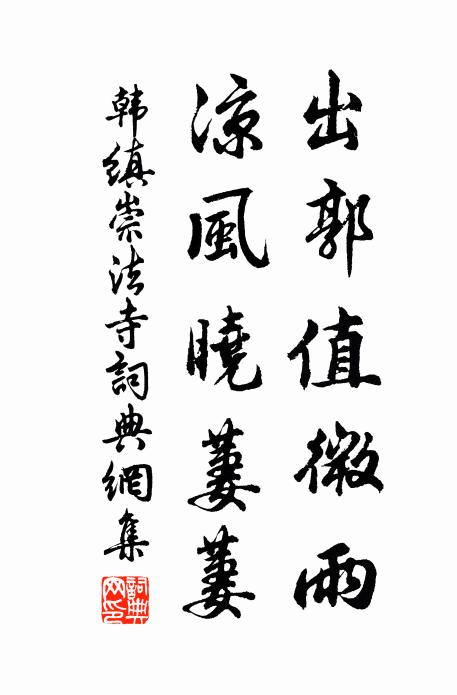 出郭值微雨
涼風曉萋萋
韩縝崇法寺詞典網集
詞典网印